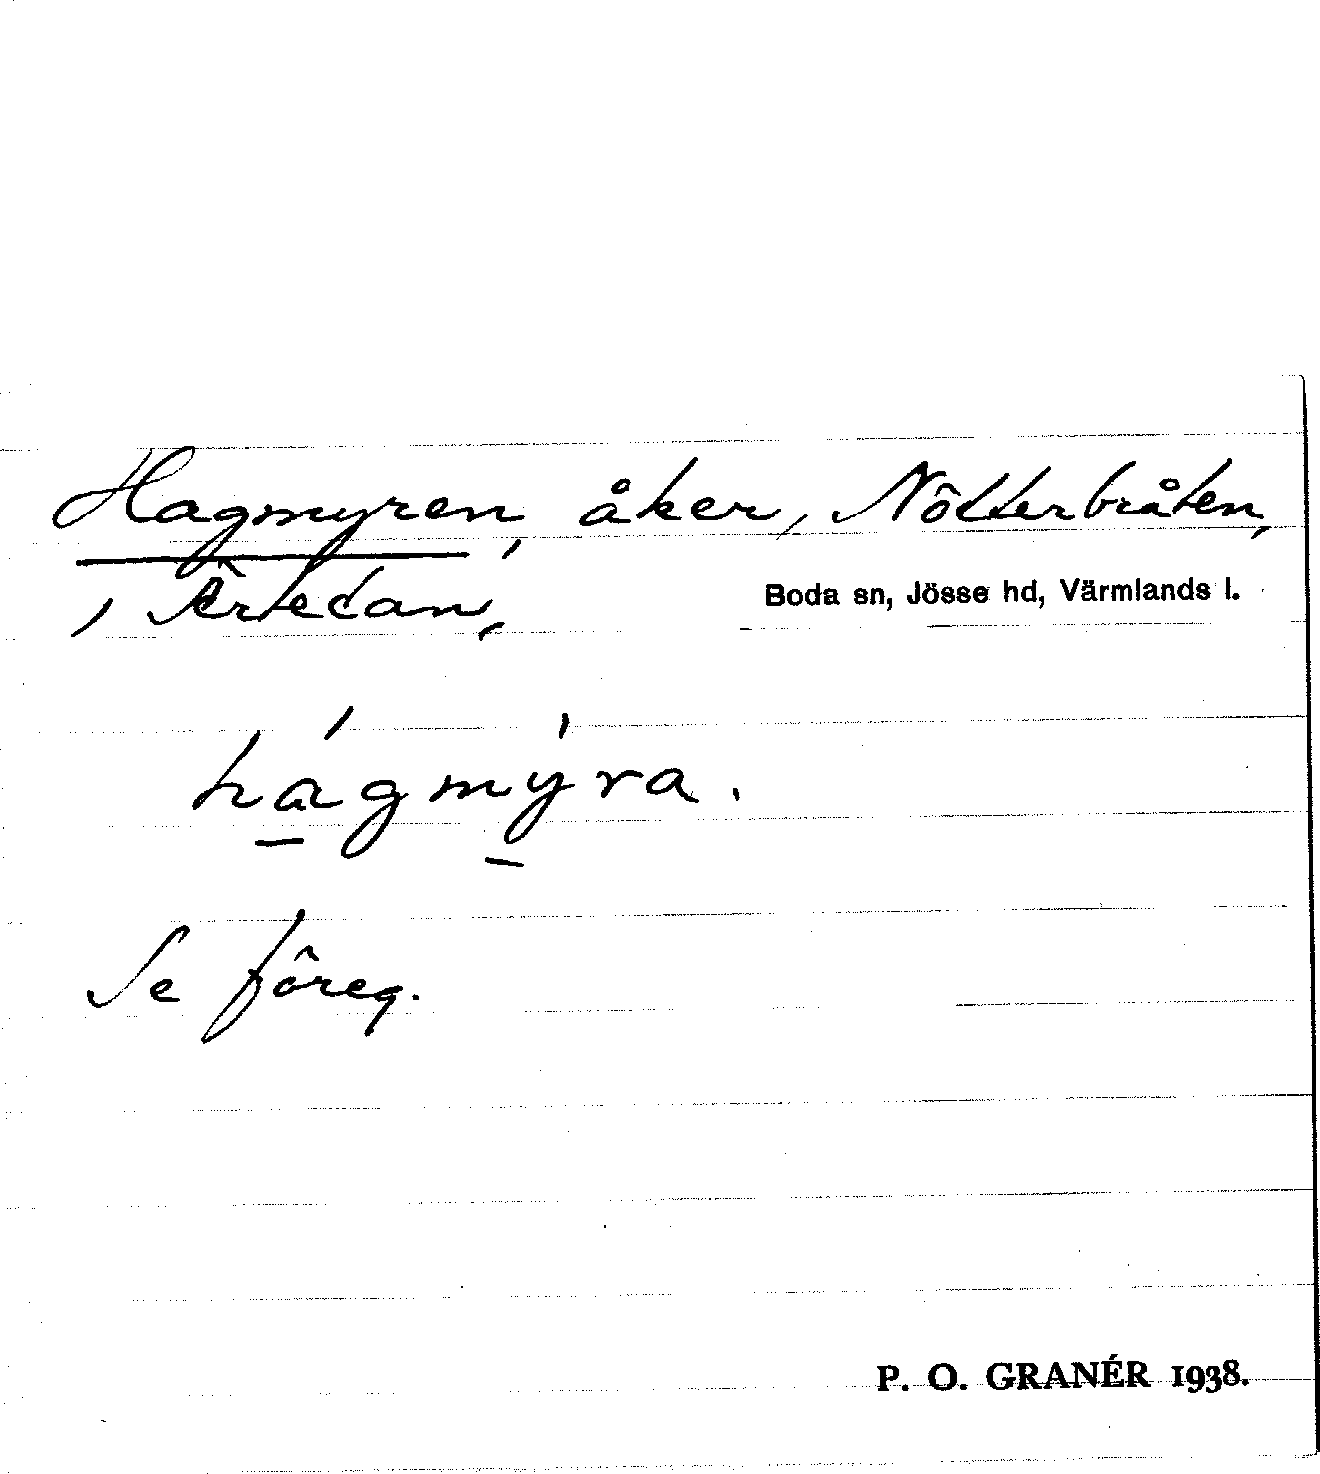 Hagmyren, åker, Nötterbråten,
Ärtetan,
Boda sn, Jösse hd, Värmlands l.
hágmýra.
Se föreg.
P. O. GRANÉR 1938.